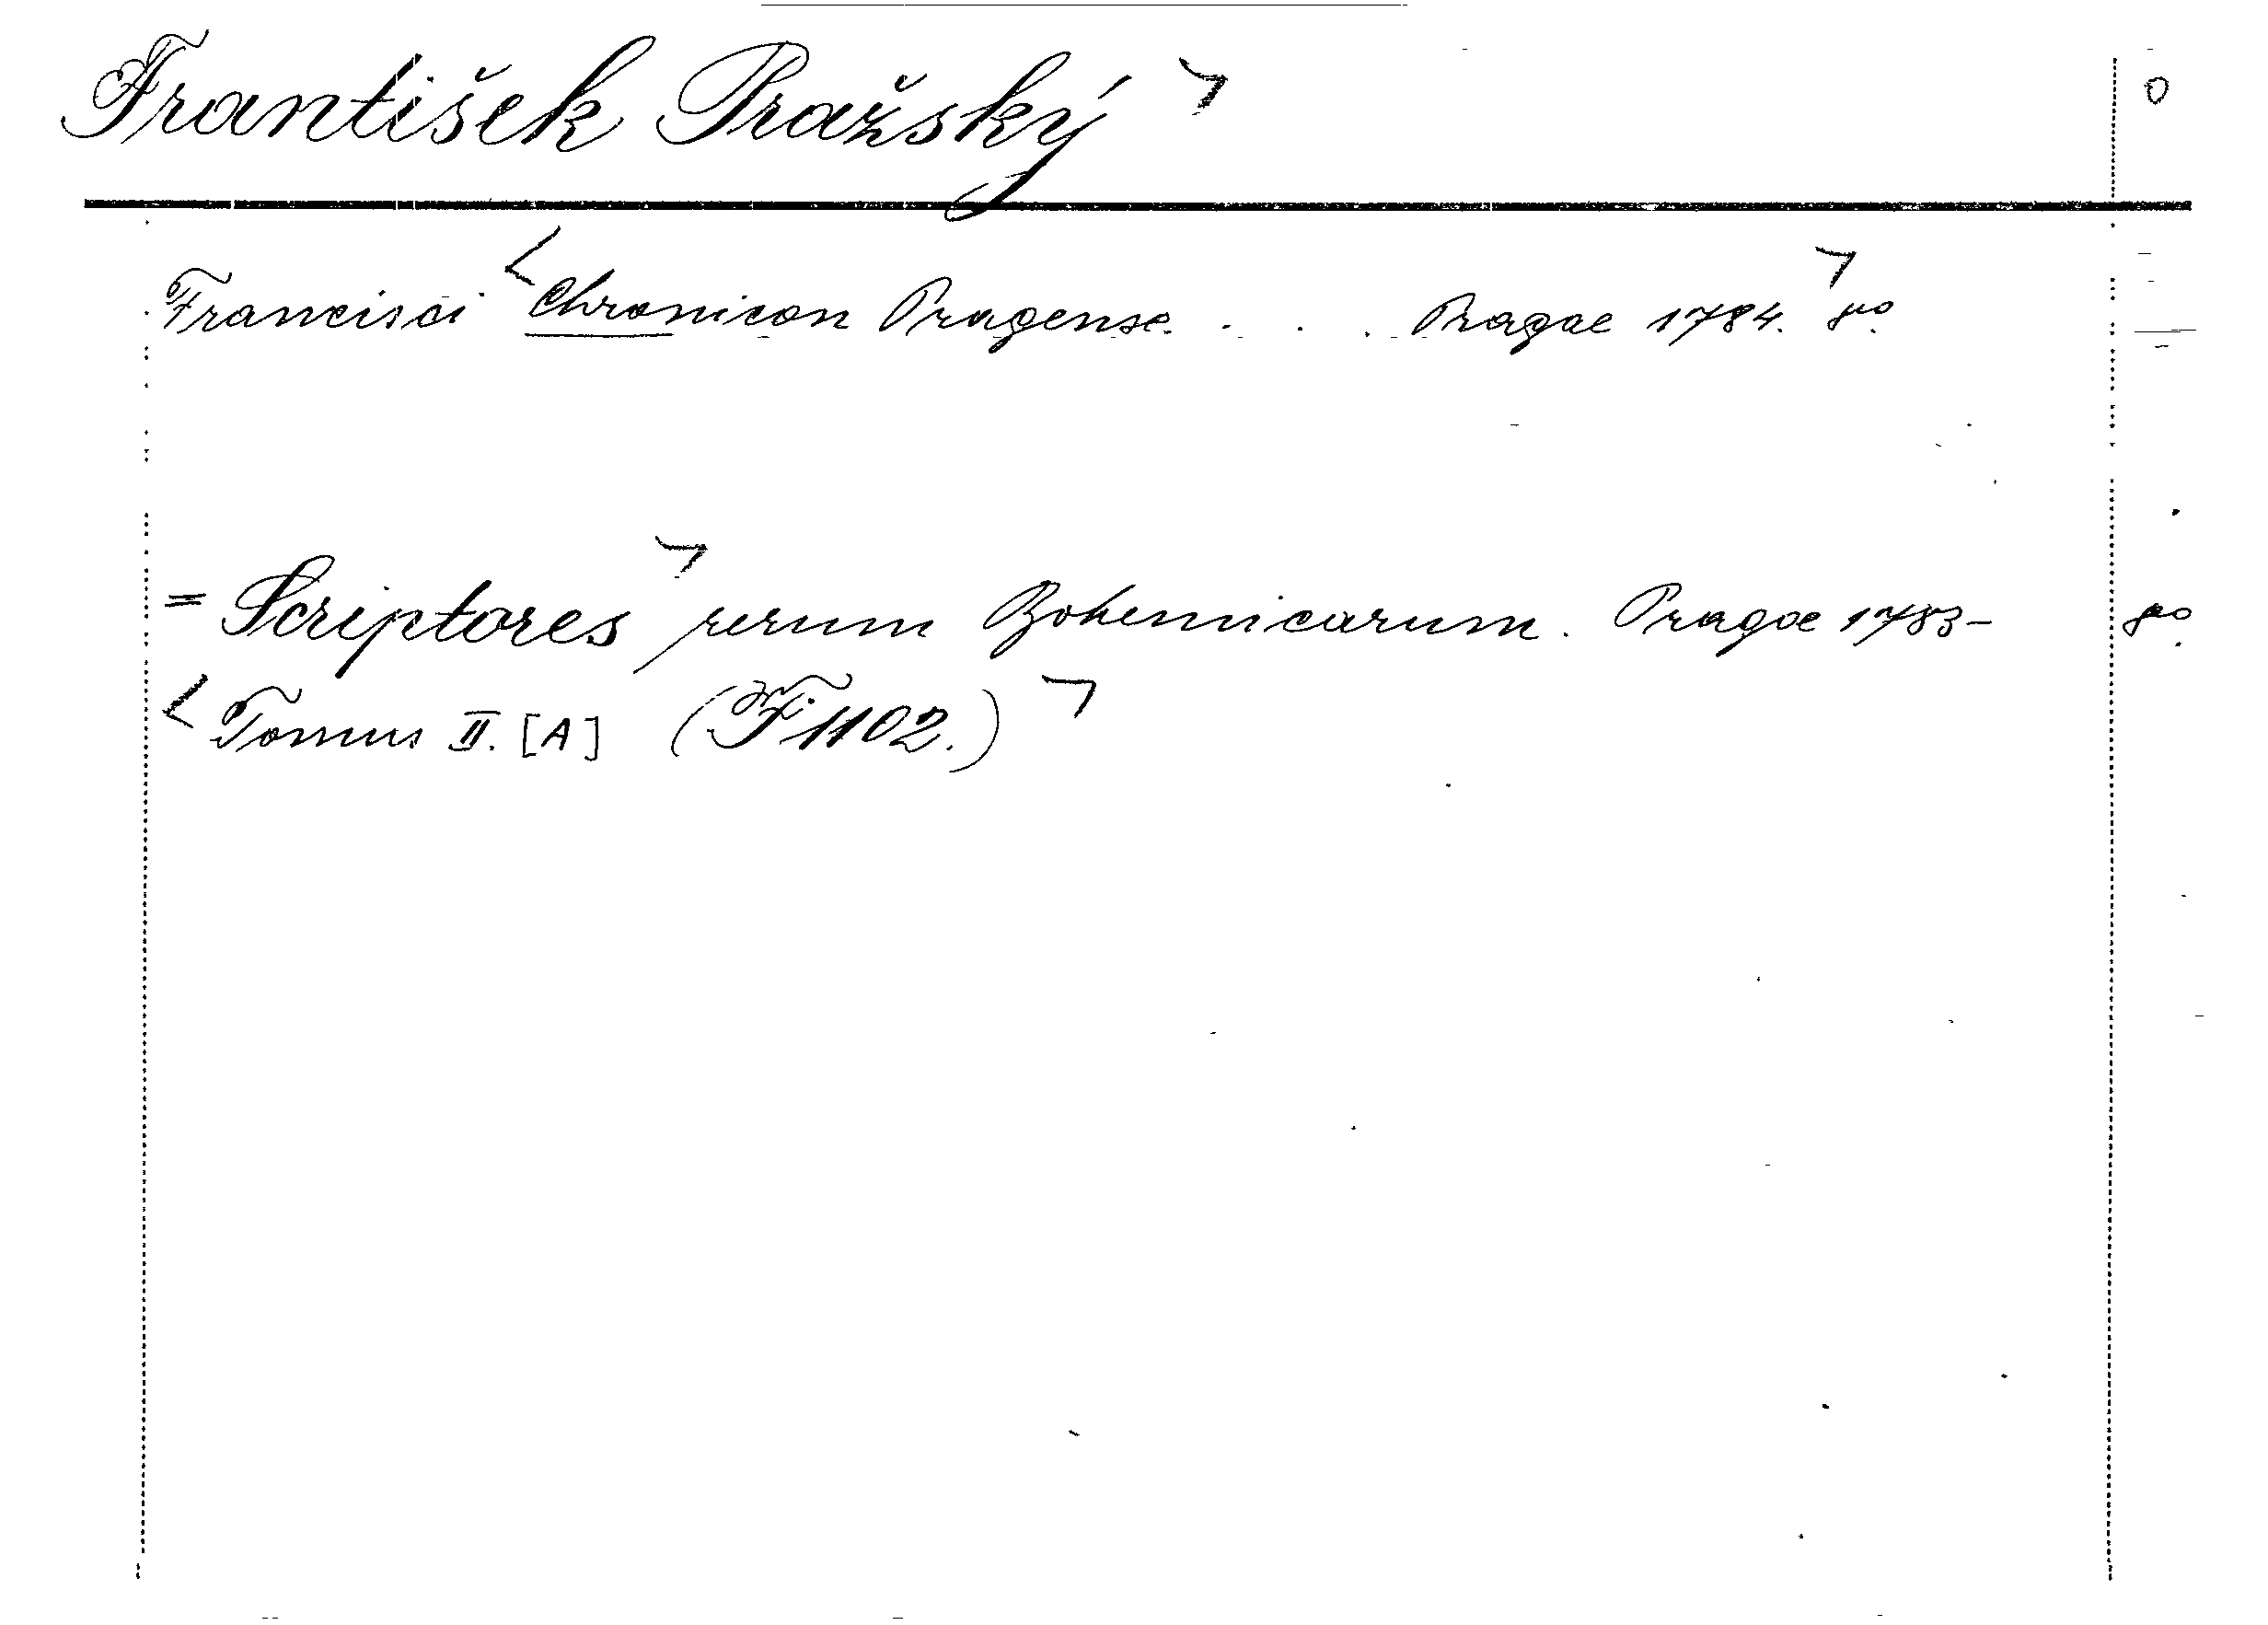 František Pražský ¬ 0
Francisci <Chronicon Pragense. . . . Pragae 1784.¬ 8º.
= Scriptores¬ rerum Bohemicarum. Pragae 1783- 8º.
<Tomus II. [A] (F 1102.)¬